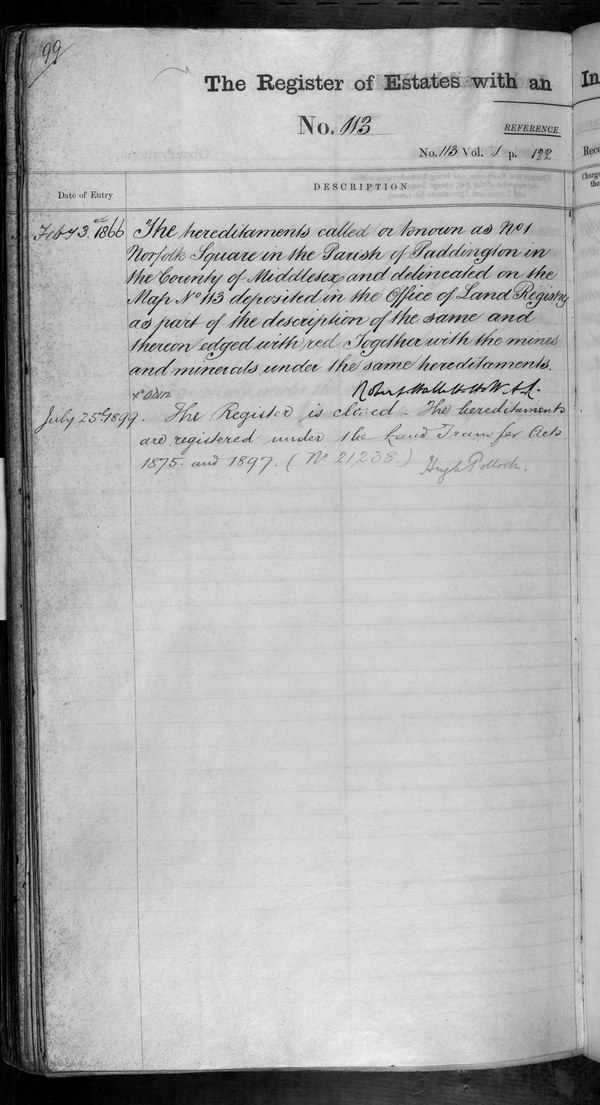 99
The Register of Estates with an
In
No. 113
REFERENCE.
No. 113 Vol. 1 p. 122
Date of Entry
DESCRIPTION
Feby 3rd 1866
The hereditaments called or known as No 1
Norfolk Square in the Parish of Paddington in
the County of Middlesex and delineated on the
Map No 113 deposited in the Office of Land Registry
as part of the description of the same and
thereon edged with red Together with the mines
and minerals under the same hereditaments.
July 25th 1899. The Register is closed. The hereditaments
are registered under the Land Transfer Acts
1875 and 1897. (No 21,238.) Hugh Pollock.